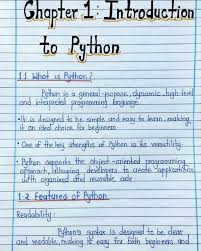 Chapter 1: Introduction
to Python
1.1 What is Python?
Python is a general-purpose, dynamic, high-level
and interpreted programming language.
•It is designed to be simple and easy to learn, making
it an ideal choice for beginners
•One of the key strengths of Python is its versatility.
•Python supports the object-oriented programming
approach, allowing developers to create applications
with organized and reusable code
1.2 Features of Python
Readability:
Python's syntax is designed to be clear
and readable, making it easy for both beginners and